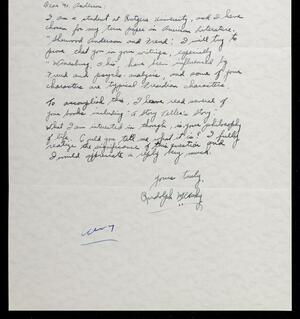 Dear Mr. Anderson:
I am a student at Rutgers University, and I have
chosen for my term paper in American Literature,
"Sherwood Anderson and Freud; I will try to
prove that you in your writings, especially
"Winesburg, Ohio, have been influenced by
Freud and psycho-analysis, and some of your
characters are typical Freudian characters.
To accomplish this, I have read several of
your books including "A Story Teller's Story"
What I am interested in though, is your philosophy
of life. Could you tell me what it is? I fully
realize the significance of this question and
I would appreciate a reply very much.
Yours truly,
Rudolph